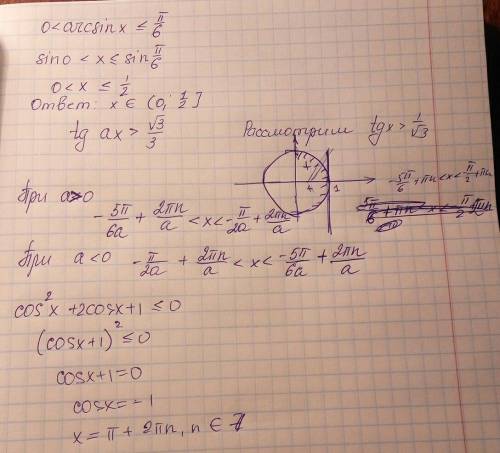 0 < arcsin x ≤ π/6
sin 0 < x ≤ sin π/6
0 < x ≤ 1/2
Ответ: x ∈ (0; 1/2]
tg ax > √3/3
Рассмотрим tg x > 1/√3
1
-5π/6 + πn < x < π/2 + πn
При a>0
-5π/6a + 2πn/a < x < -π/2a + 2πn/a
При a<0 -π/2a + 2πn/a < x < -5π/6a + 2πn/a
cos²x + 2cosx + 1 ≤ 0
(cosx+1)² ≤ 0
cosx+1=0
cosx=-1
x = π + 2πn, n ∈ Z